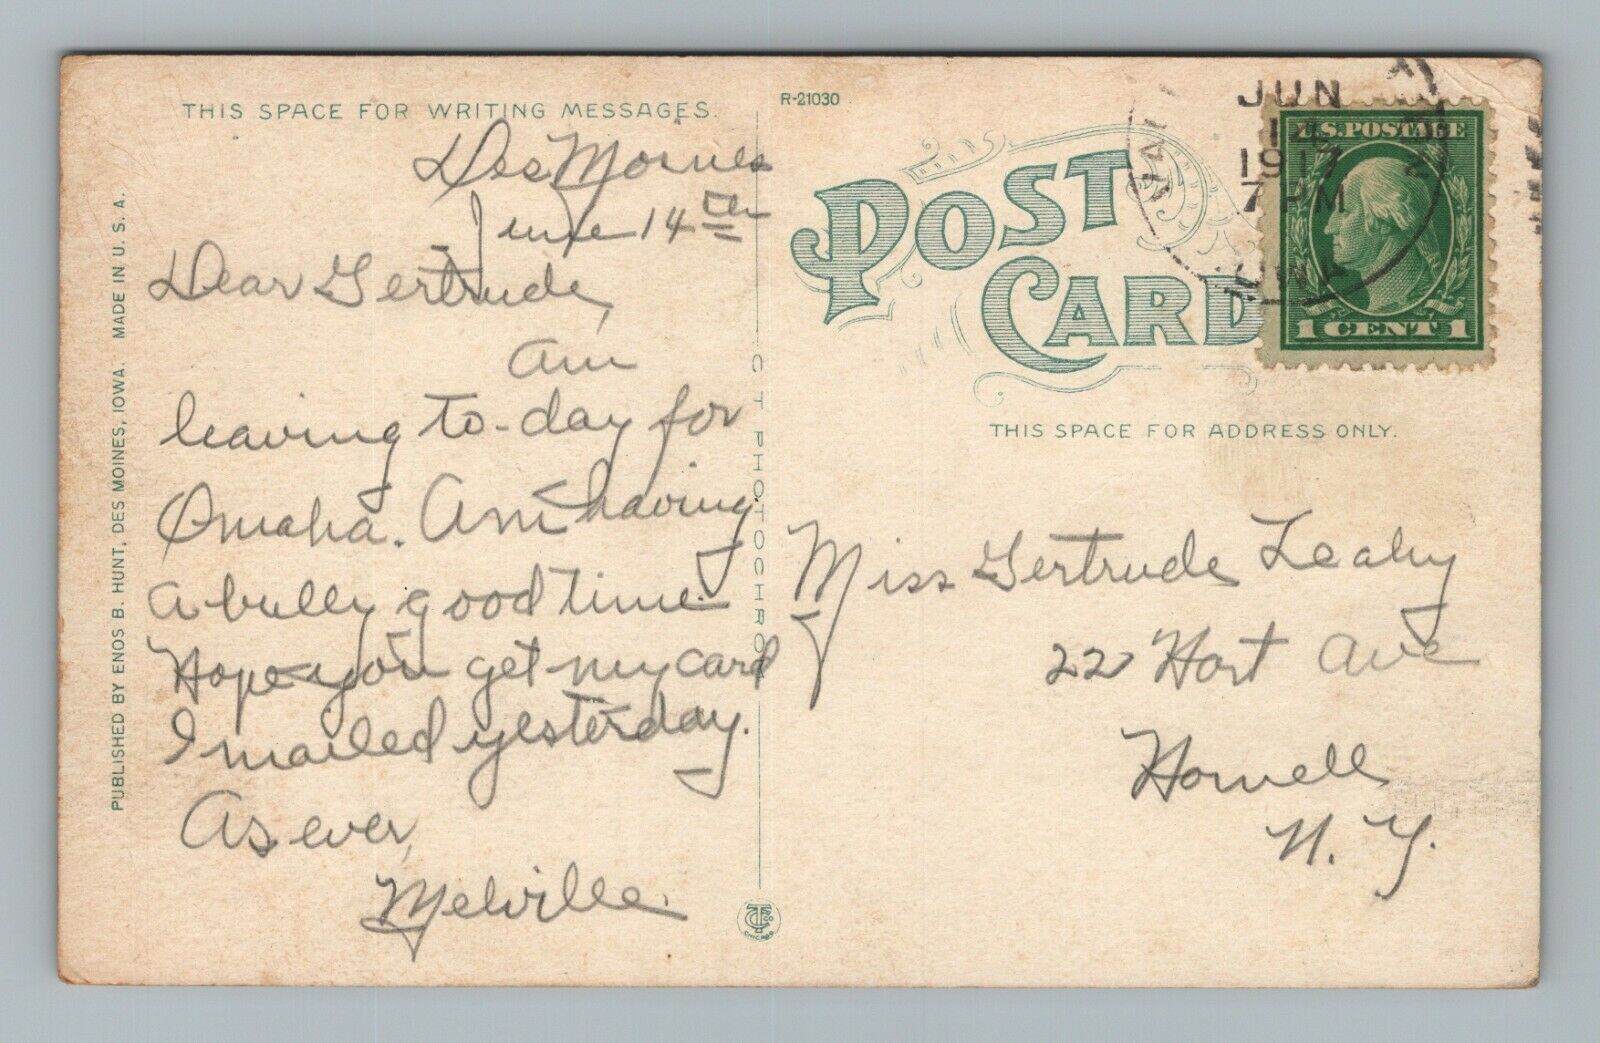 THIS SPACE FOR WRITING MESSAGES.
Des Moines
June 14th
Dear Gertrude,
Am
leaving to-day for
Omaha. Am having
a bully good time.
Hope you get my card
I mailed yesterday.
As ever,
Melville.
PUBLISHED BY ENOS B. HUNT, DES MOINES, IOWA. MADE IN U. S. A.
C T PHOTOCHROM
CHICAGO
R-21030
POST CARD
JUN
14
1917
7 PM
IOWA
U.S. POSTAGE
1 CENT 1
THIS SPACE FOR ADDRESS ONLY.
Miss Gertrude Leahy
22 Hart Ave
Hornell
N. Y.